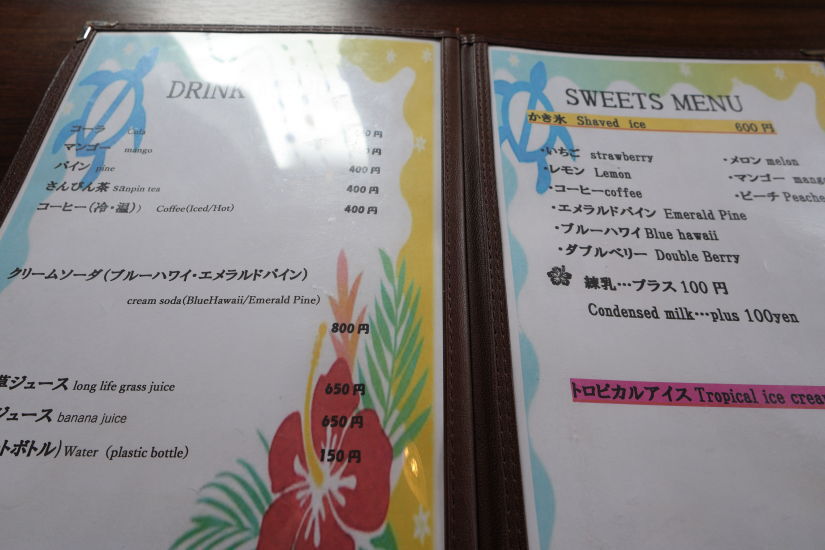 DRINK
コーラ Cola
マンゴー mango
パイン pine 400円
さんぴん茶 sanpin tea 400円
コーヒー(冷・温)) Coffee(Iced/Hot) 400円
クリームソーダ(ブルーハワイ・エメラルドパイン)
cream soda(BlueHawaii/Emerald Pine)
800円
ジュース long life grass juice 650円
ジュース banana juice 650円
トボトル)Water (plastic bottle) 150円
SWEETS MENU
かき氷 Shaved ice 600円
・いちご strawberry ・メロン melon
・レモン Lemon ・マンゴー mango
・コーヒーcoffee ・ピーチ Peache
・エメラルドパイン Emerald Pine
・ブルーハワイ Blue hawaii
・ダブルベリー Double Berry
練乳…プラス100円
Condensed milk…plus 100yen
トロピカルアイス Tropical ice cream